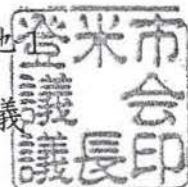 登米市
議会
議長印